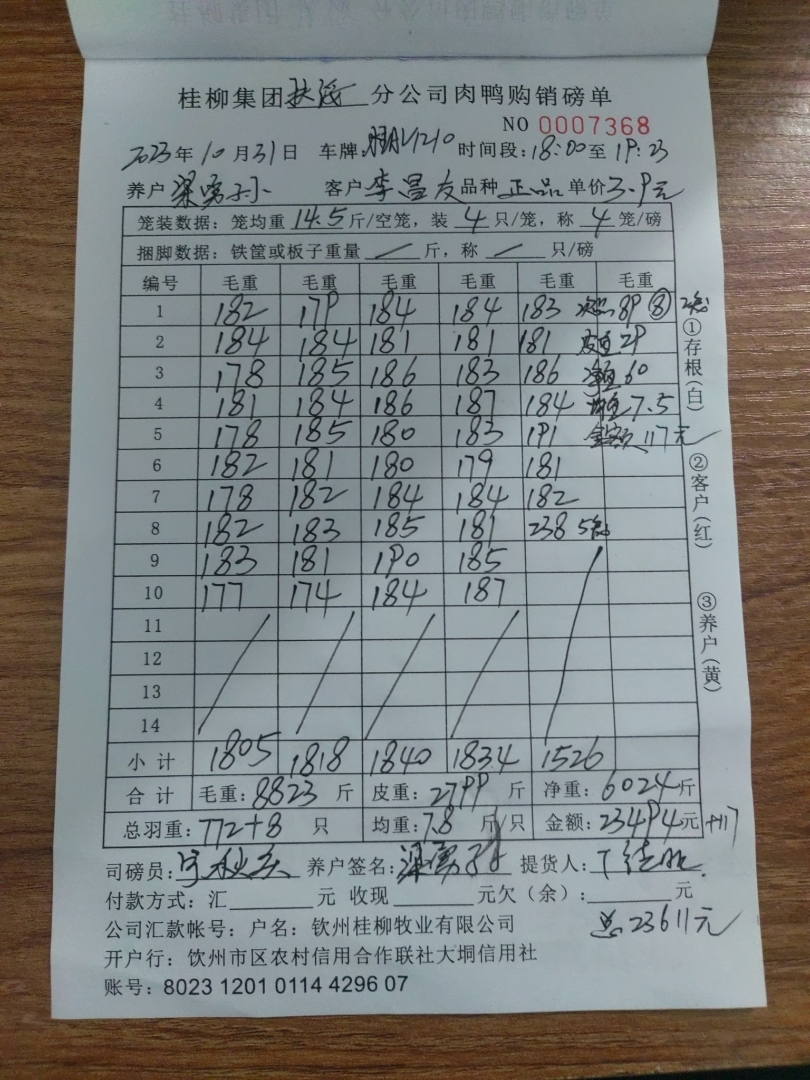 桂柳集团扶绥分公司肉鸭购销磅单
NO 0007368
2023年10月31日 车牌: 时间段:18:00至19:23
养户 客户李昌友品种正品单价3.9元
笼装数据:笼均重14.5斤/空笼,装4只/笼,称4笼/磅
捆脚数据:铁筐或板子重量/斤,称/只/磅
编号 毛重 毛重 毛重 毛重 毛重 毛重
1 182 179 184 184 183 次品89⑧ 2笼
2 184 184 181 181 181 皮重29
3 178 185 186 183 186 净重60
4 181 184 186 187 184 均重7.5
5 178 185 180 183 191 金额117元
6 182 181 180 179 181
7 178 182 184 184 182
8 182 183 185 181 238 5笼
9 183 181 190 185
10 177 174 184 187
11
12
13
14
小计 1805 1818 1840 1834 1526
合计 毛重:8823斤 皮重:2799斤 净重:6024斤
总羽重:772+8只 均重:7.8斤/只 金额:23494元+117
司磅员: 养户签名: 提货人:
付款方式:汇元 收现元欠(余):元
公司汇款帐号:户名:钦州桂柳牧业有限公司
总:23611元
开户行:饮州市区农村信用合作联社大垌信用社
账号:8023 1201 0114 4296 07
①存根(白)
②客户(红)
③养户(黄)